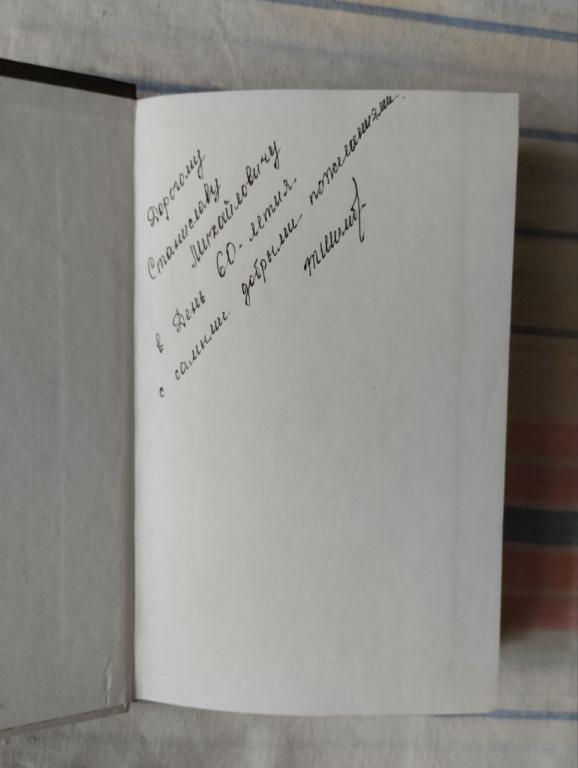 Дорогому
Станиславу
Михайловичу
в День 60-летия.
с самыми добрыми пожеланиями.